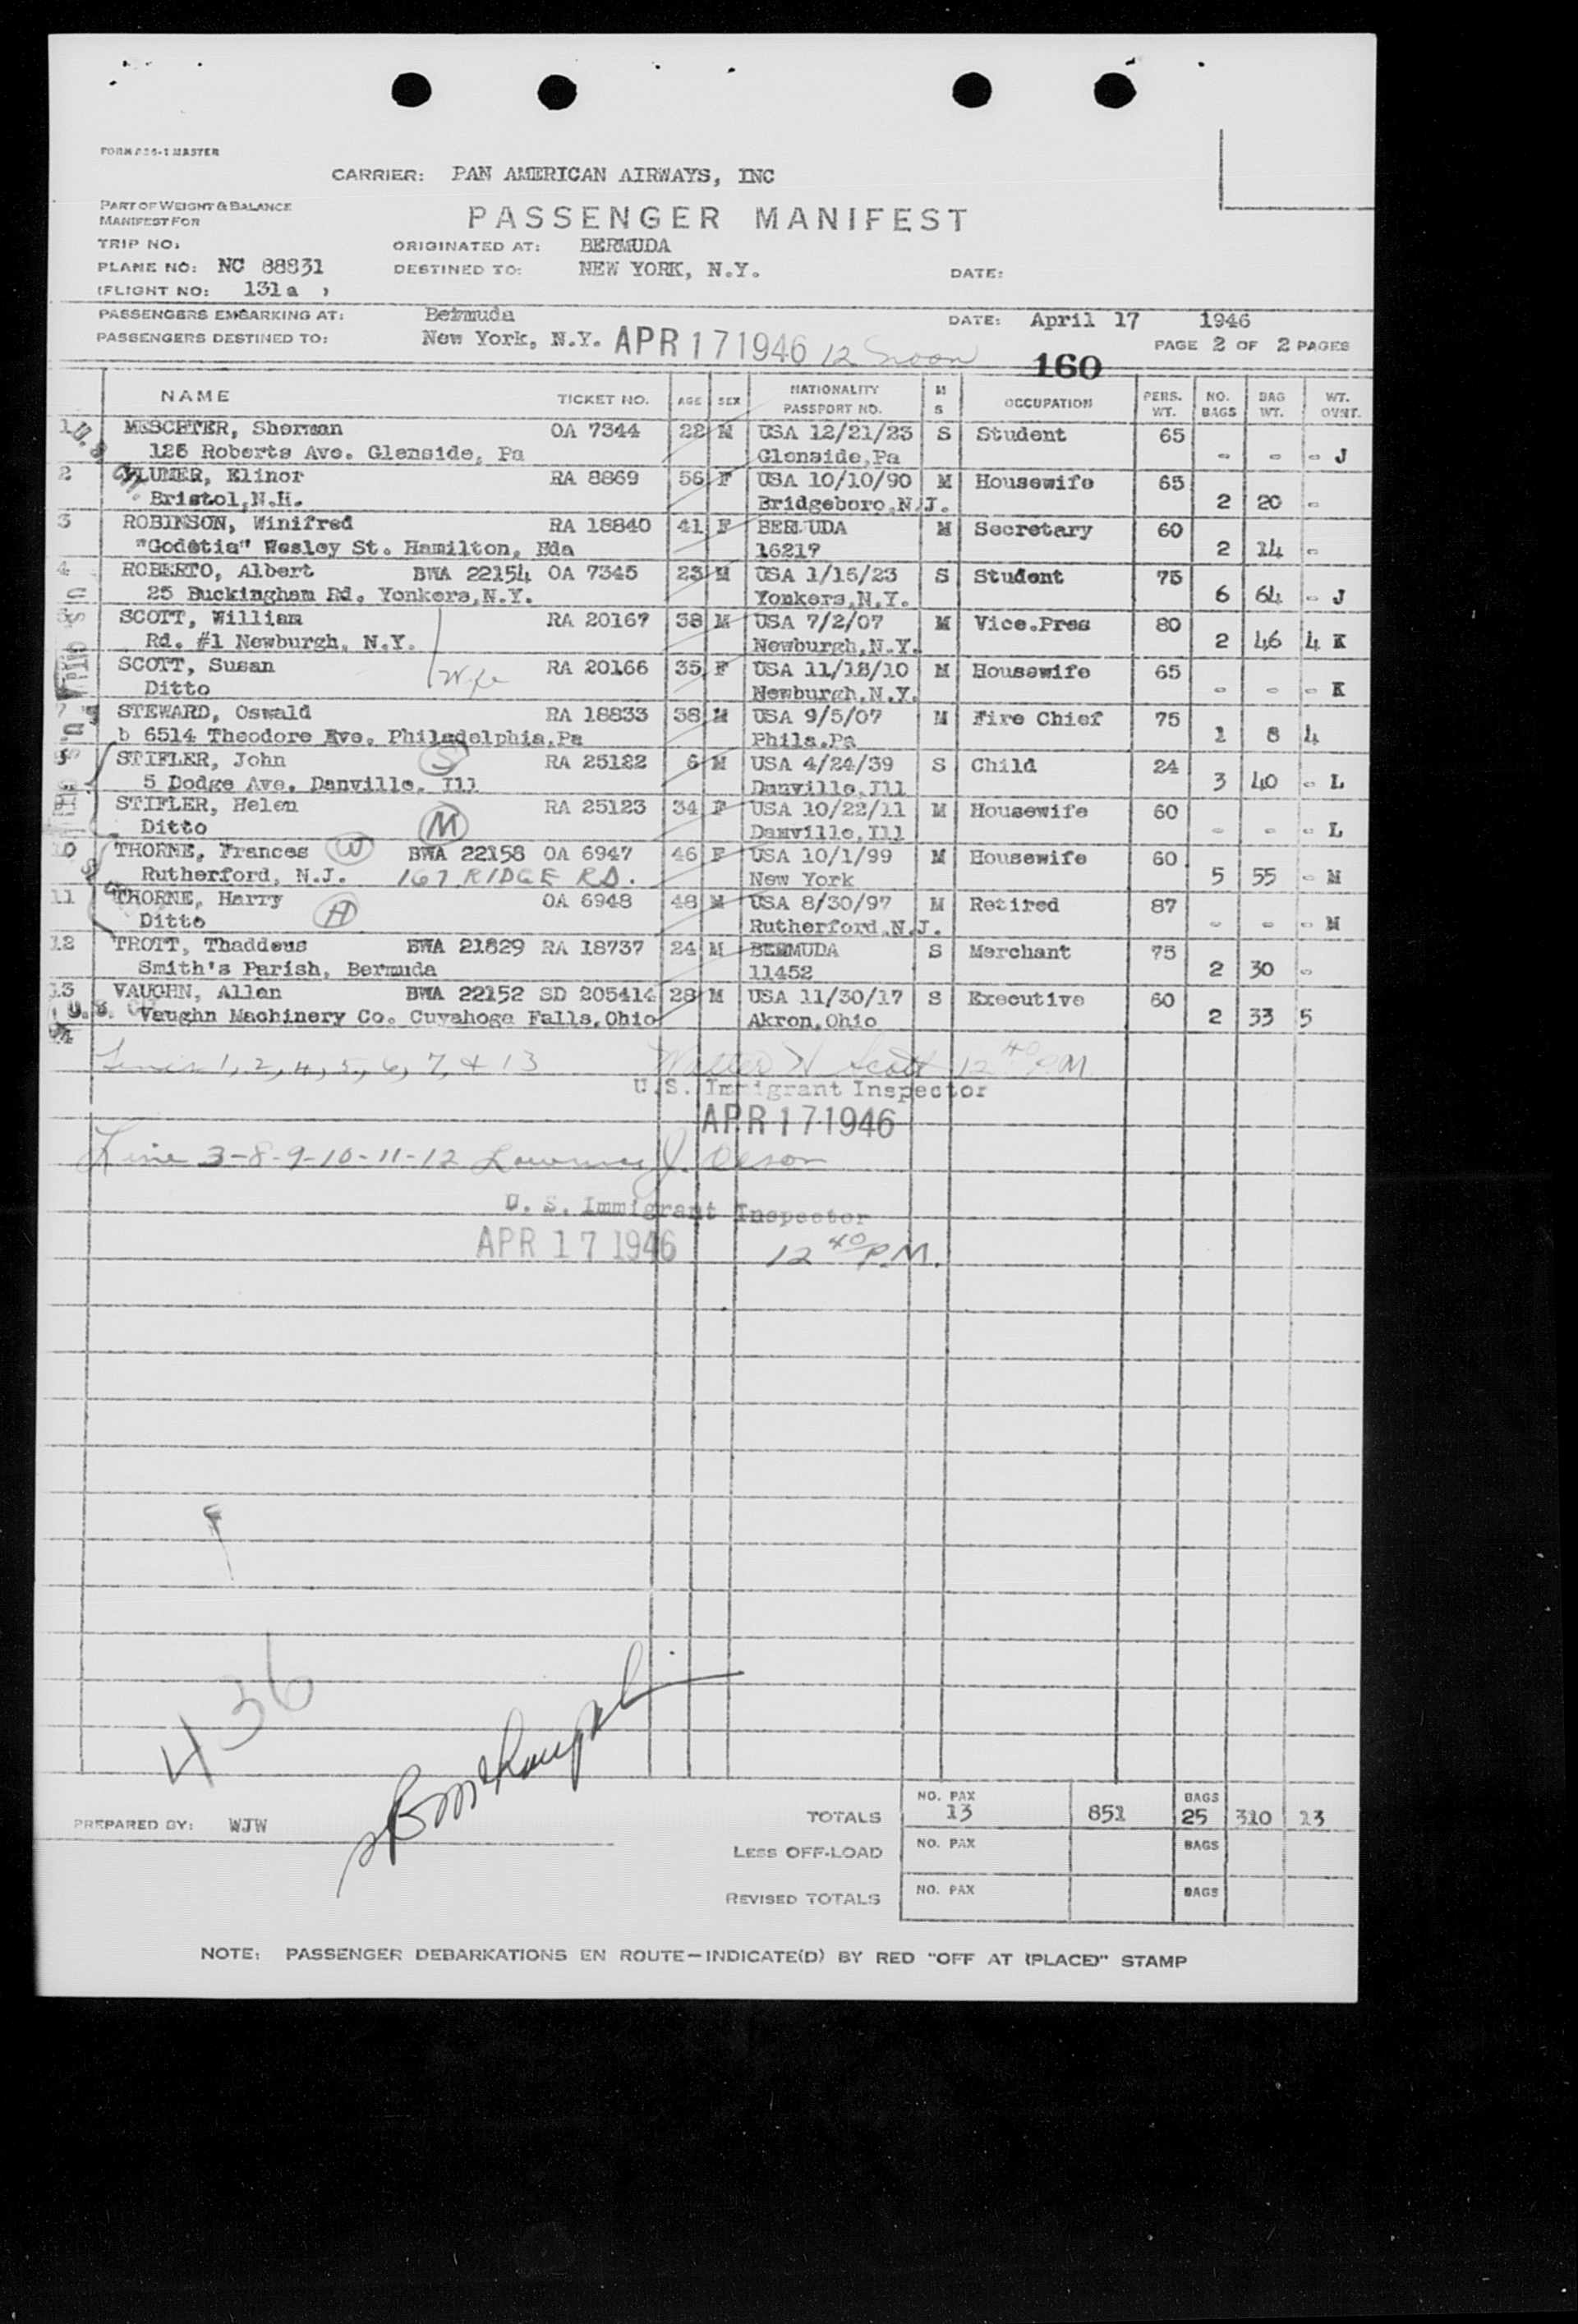 FORM #36-1 MASTER
CARRIER: PAN AMERICAN AIRWAYS, INC
PART OF WEIGHT & BALANCE
MANIFEST FOR
PASSENGER MANIFEST
TRIP NO: ORIGINATED AT: BERMUDA
PLANE NO: NC 88831 DESTINED TO: NEW YORK, N.Y. DATE:
(FLIGHT NO: 131a )
PASSENGERS EMBARKING AT: Bermuda DATE: April 17 1946
PASSENGERS DESTINED TO: New York, N.Y. APR 17 1946 12 noon PAGE 2 OF 2 PAGES
160
NAME TICKET NO. AGE SEX NATIONALITY PASSPORT NO. M S OCCUPATION PERS. WT. NO. BAGS BAG WT. WT. OVWT.
1 MESCHTER, Sherman OA 7344 22 M USA 12/21/23 S Student 65
126 Roberts Ave. Glenside, Pa Glenside, Pa - - - J
2 PLUMER, Elinor RA 8869 56 F USA 10/10/90 M Housewife 65
Bristol, N.H. Bridgeboro, N.J. 2 20 -
3 ROBINSON, Winifred RA 18840 41 F BERMUDA M Secretary 60
"Godetia" Wesley St. Hamilton, Bda 16217 2 14 -
4 ROBERTO, Albert BWA 22154 OA 7345 23 M USA 1/15/23 S Student 75
25 Buckingham Rd, Yonkers, N.Y. Yonkers, N.Y. 6 64 - J
SCOTT, William RA 20167 38 M USA 7/2/07 M Vice.Pres 80
Rd. #1 Newburgh, N.Y. Newburgh, N.Y. 2 46 4 K
SCOTT, Susan Wife RA 20166 35 F USA 11/18/10 M Housewife 65
Ditto Newburgh, N.Y. - - - K
7 STEWARD, Oswald RA 18833 38 M USA 9/5/07 M Fire Chief 75
b 6514 Theodore Ave. Philadelphia, Pa Phila. Pa 1 8 4
STIFLER, John S RA 25122 6 M USA 4/24/39 S Child 24
5 Dodge Ave. Danville, Ill Danville, Ill 3 40 - L
STIFLER, Helen RA 25123 34 F USA 10/22/11 M Housewife 60
Ditto M Danville, Ill - - - L
10 THORNE, Frances W BWA 22158 OA 6947 46 F USA 10/1/99 M Housewife 60
Rutherford, N.J. 167 RIDGE RD. New York 5 55 - M
11 THORNE, Harry OA 6948 48 M USA 8/30/97 M Retired 87
Ditto H Rutherford, N.J. - - - M
12 TROTT, Thaddeus BWA 21829 RA 18737 24 M BERMUDA S Merchant 75
Smith's Parish, Bermuda 11452 2 30 -
13 VAUGHN, Allen BWA 22152 SD 205414 28 M USA 11/30/17 S Executive 60
Vaughn Machinery Co. Cuyahoga Falls, Ohio Akron, Ohio 2 33 5
Lines 1, 2, 4, 5, 6, 7, & 13 Walter H Scott 12 40 PM
U.S. Immigrant Inspector
APR 17 1946
Line 3-8-9-10-11-12 J. Olson
U. S. Immigrant Inspector
APR 17 1946 12 40 P.M.
436
PREPARED BY: WJW
TOTALS NO. PAX 13 851 BAGS 25 310 13
LESS OFF-LOAD NO. PAX BAGS
REVISED TOTALS NO. PAX BAGS
NOTE: PASSENGER DEBARKATIONS EN ROUTE—INDICATE(D) BY RED "OFF AT (PLACE)" STAMP